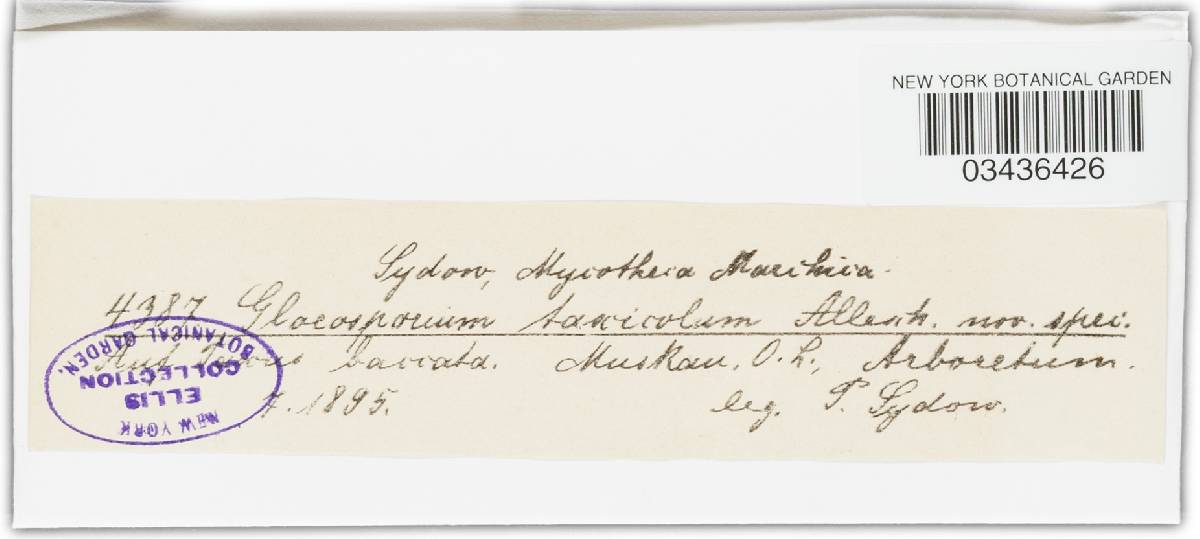 NEW YORK BOTANICAL GARDEN
03436426
Sydow, Mycotheca Marchica.
4387 Gloeosporium taxicolum Allesch. nov. spec.
Auf Taxus baccata. Muskau, O. L., Arboretum.
7. 1895. leg. P. Sydow.
NEW YORK
ELLIS
COLLECTION
BOTANICAL GARDEN.